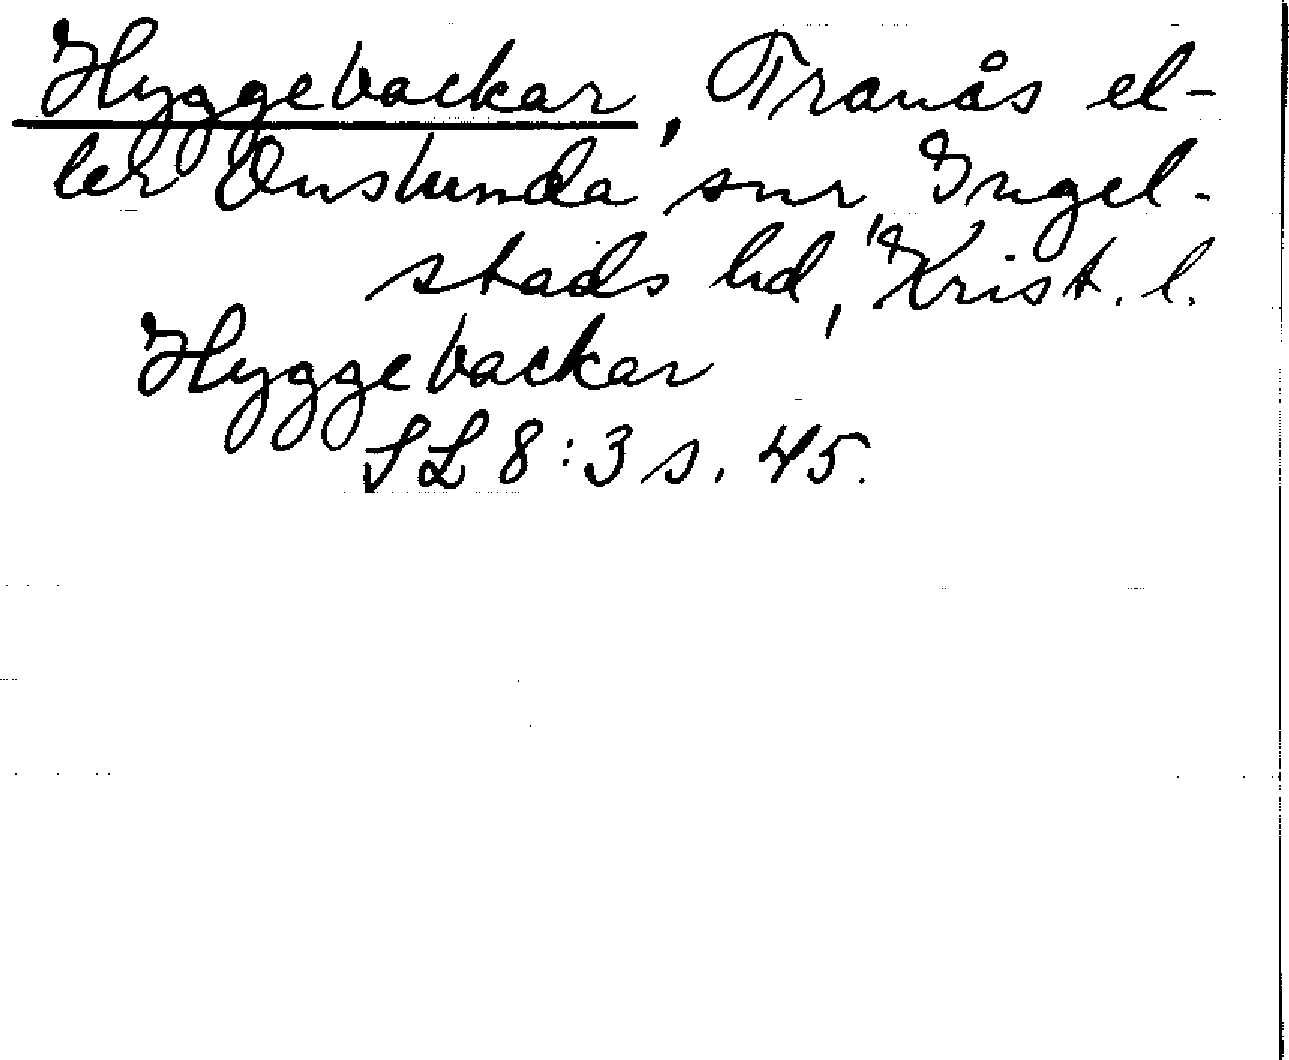 Hyggebackar, Tranås el-
ler Onslunda snr, Ingel-
stads hd, Krist. l.
Hyggebackar
SL 8:3 s. 45.